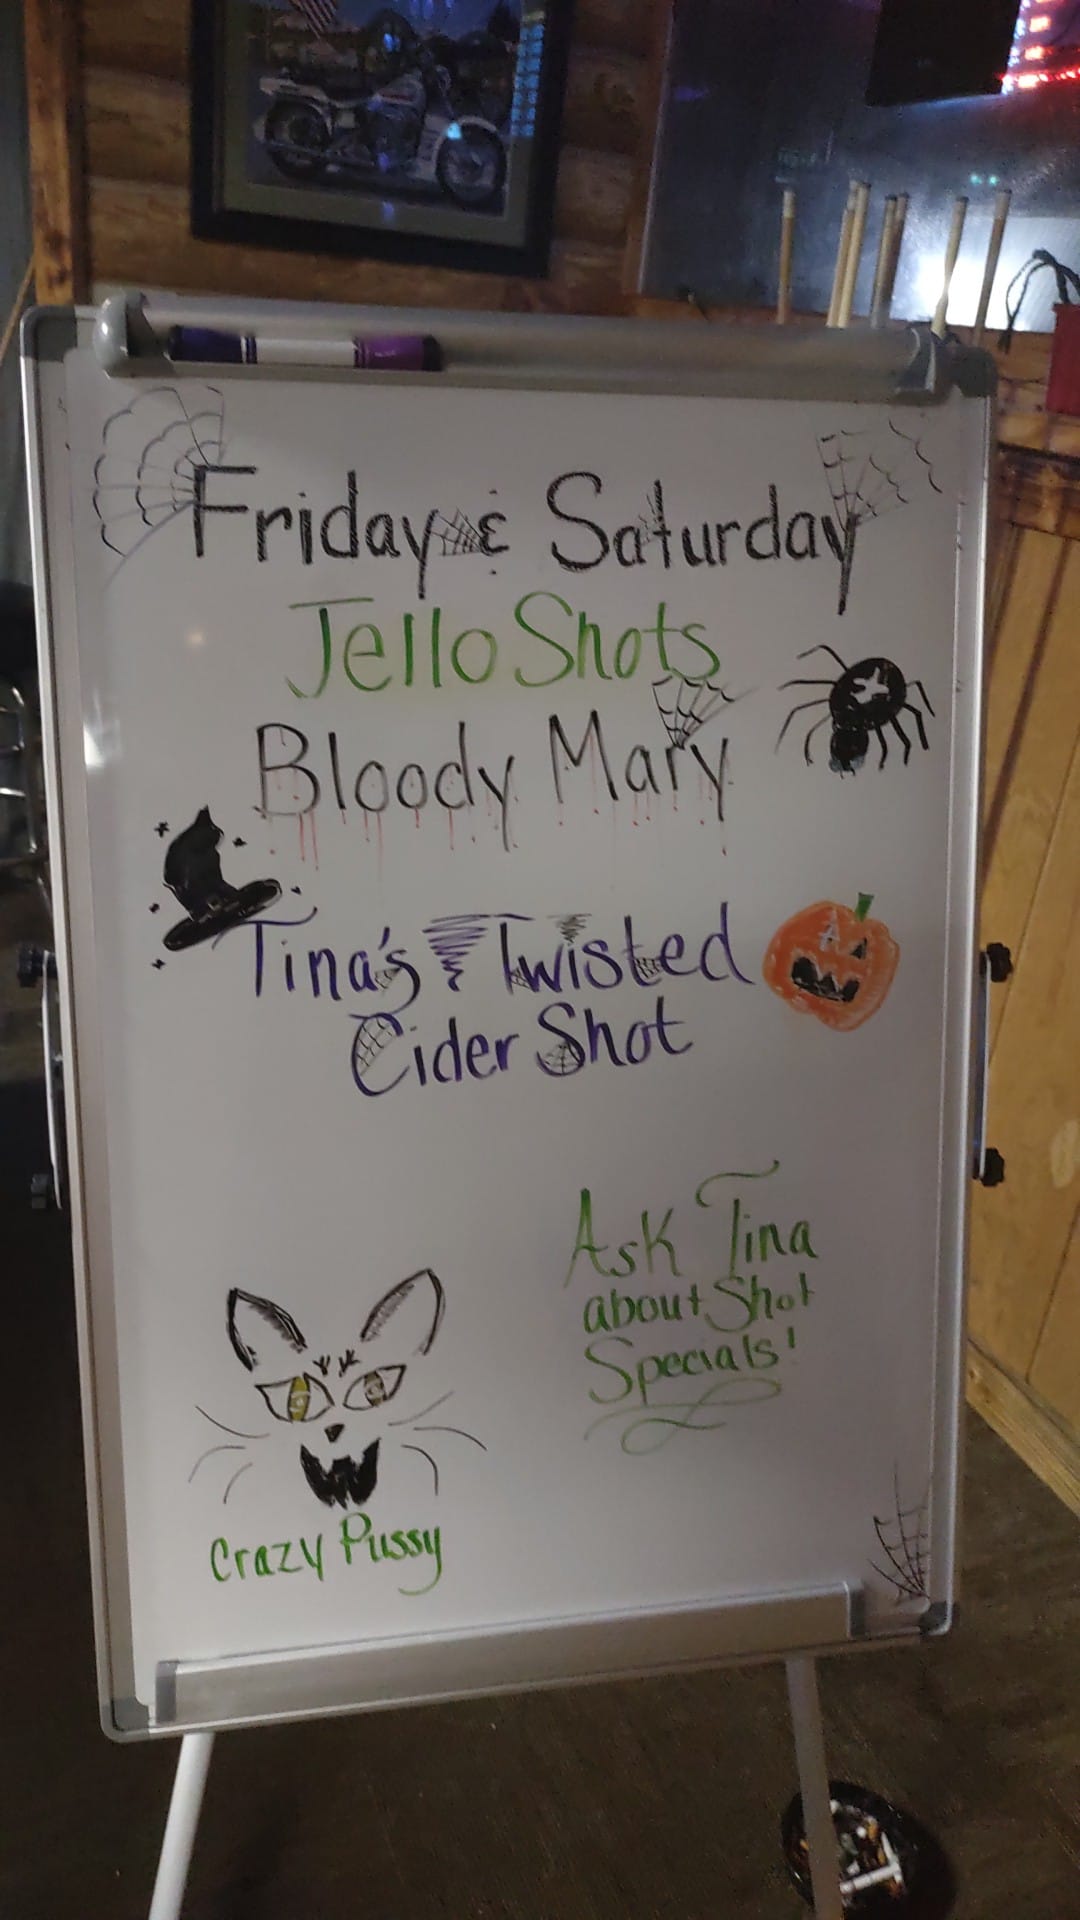 Friday & Saturday
Jello Shots
Bloody Mary
Tina's Twisted
Cider Shot
Ask Tina
about Shot
Specials!
Crazy Pussy